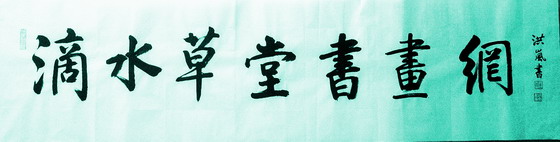 滴水草堂書畫網
洪嵐書